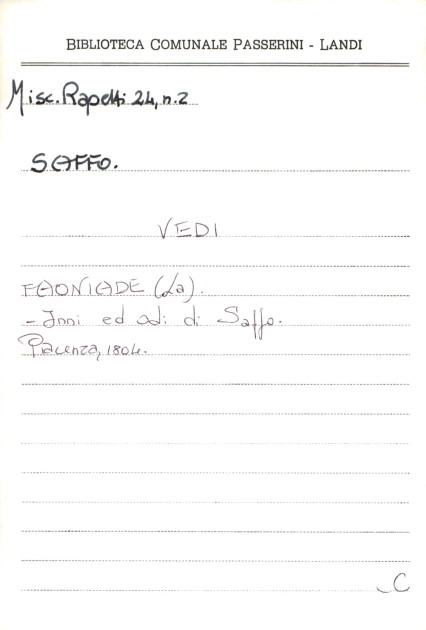 BIBLIOTECA COMUNALE PASSERINI - LANDI
Misc. Rapetti 24, n. 2
SAFFO.
VEDI
FAONIADE (La).
- Inni ed odi di Saffo.
Piacenza, 1804.
C